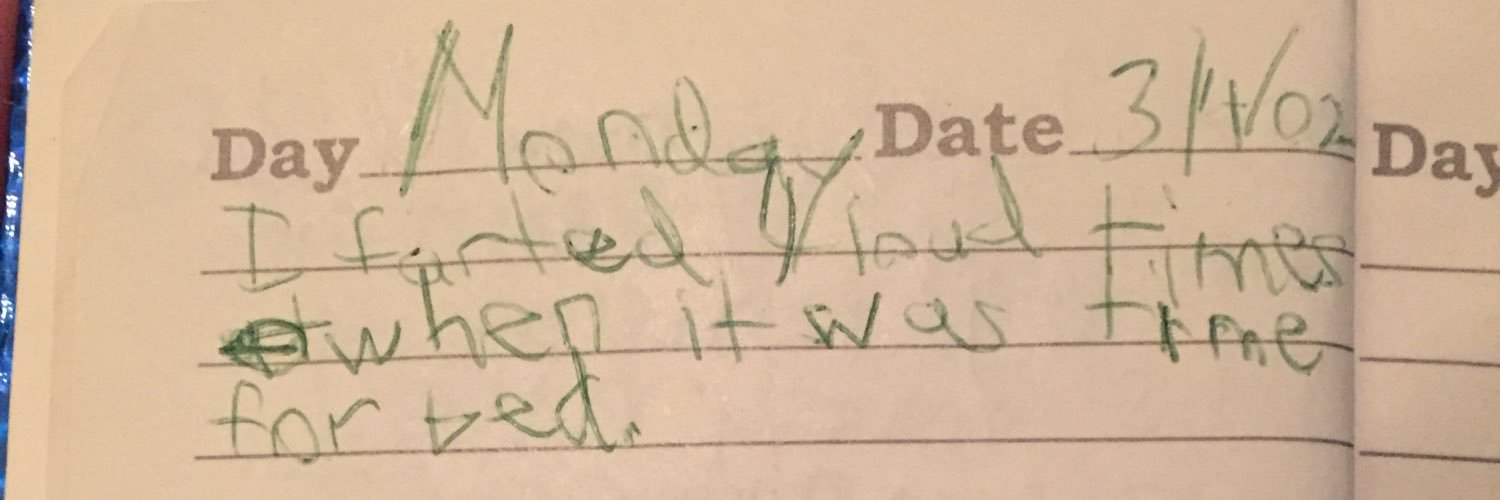 Day Monday Date 3/4/02
I farted 4 loud times
when it was time
for bed.
Day